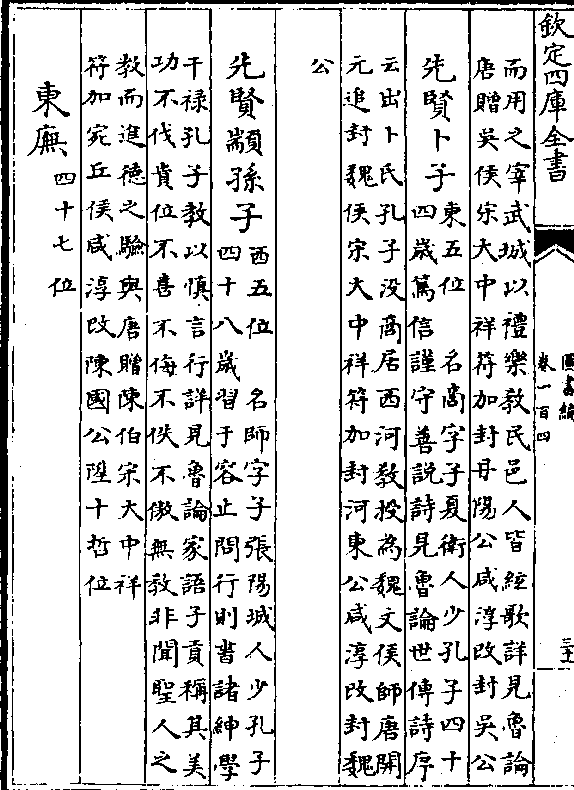 欽定四庫全書
圖書編
卷一百四
而用之宰武城以禮樂教民邑人皆絃歌詳見魯論
唐贈吳侯宋大中祥符加封丹陽公咸淳改封吳公
先賢卜子
東五位 名商字子夏衛人少孔子四十
四歲篤信謹守善說詩見魯論世傳詩序
云出卜氏孔子没商居西河教授為魏文侯師唐開
元追封魏侯宋大中祥符加封河東公咸淳改封魏
公
先賢顓孫子
西五位 名師字子張陽城人少孔子
四十八歲習于容止問行則書諸紳學
干禄孔子教以慎言行詳見魯論家語子貢稱其美
功不伐貴位不善不侮不佚不傲無教非聞聖人之
教而進德之驗與唐贈陳伯宋大中祥
符加宛丘侯咸淳改陳國公陞十哲位
東廡
四十七位